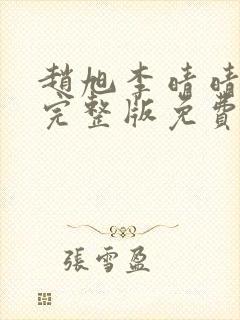 趙旭李晴晴
完整版免費
張雪盈